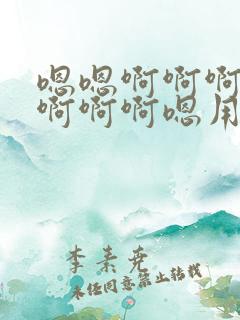 嗯嗯啊啊啊
啊啊啊嗯用
李素尧
未经同意禁止转载